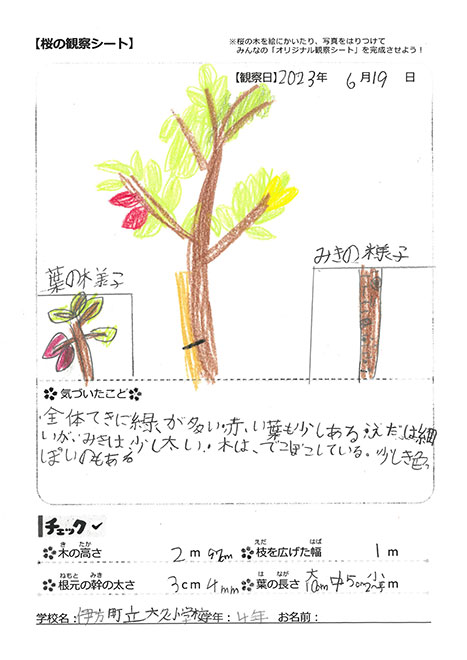 【桜の観察シート】
※桜の木を絵にかいたり、写真をはりつけて
みんなの「オリジナル観察シート」を完成させよう!
【観察日】2023年 6月19日
みきの様子
葉の様子
気づいたこと
・全体てきに緑が多い。赤い葉も少しある。えだは細
いが、みきは少し太い。木は、でこぼこしている。少しき色っ
ぽいのもある
チェック
木の高さ 2m 92cm 枝を広げた幅 1m
き たか えだ はば
根元の幹の太さ 3cm 4mm 葉の長さ 大10cm中5cm小
ねもと みき は なが
学校名:伊方町立大久小学校 学年:4年 お名前: